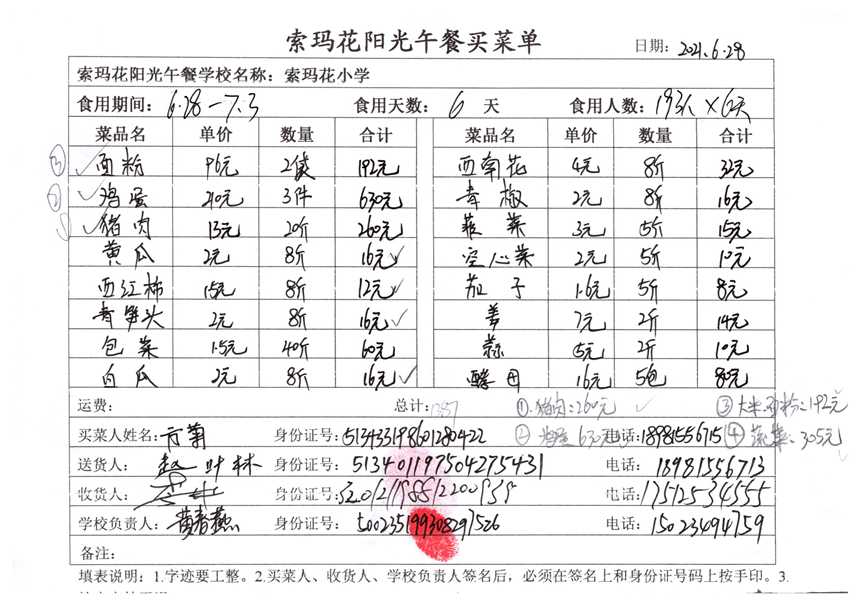 索玛花阳光午餐买菜单
日期: 2021.6.28
索玛花阳光午餐学校名称: 索玛花小学
食用期间: 6.28-7.3 食用天数: 6 天 食用人数: 193人×6天
菜品名 单价 数量 合计 菜品名 单价 数量 合计
③ ✓面粉 96元 2袋 192元 西兰花 4元 8斤 32元
② ✓鸡蛋 210元 3件 630元 青椒 2元 8斤 16元
✓猪肉 13元 20斤 260元 韭菜 3元 5斤 15元
黄瓜 2元 8斤 16元✓ 空心菜 2元 5斤 10元
西红柿 1.5元 8斤 12元✓ 茄子 1.6元 5斤 8元
青笋头 2元 8斤 16元✓ 姜 7元 2斤 14元
包菜 1.5元 40斤 60元 蒜 5元 2斤 10元
白瓜 2元 8斤 16元✓ 16元 5包 80元
运费: 总计: 1387 ①.猪肉:260元 ✓ ③大米.面粉:192元
买菜人姓名: 身份证号: 513433198601280422 ②鸡蛋630元 电话: 18981556715 ④蔬菜:305元
送货人: 赵叶林 身份证号: 513401197504275431 电话: 18981556713
收货人: 身份证号: 电话: 17512534555
学校负责人: 黄春燕 身份证号: 500235199308297526 电话: 15023494759
备注:
填表说明: 1.字迹要工整。2.买菜人、收货人、学校负责人签名后，必须在签名上和身份证号码上按手印。3.